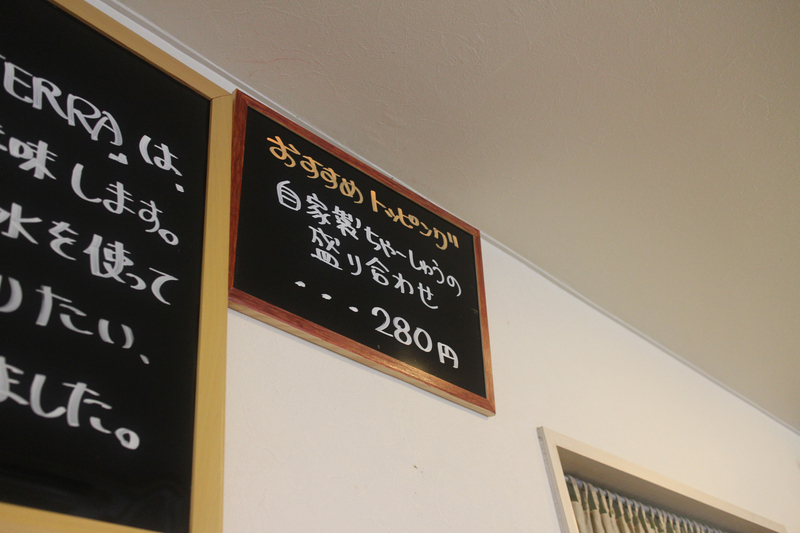 TERRA"は、
味します。
水を使って
りたい、
ました。
おすすめトッピング
自家製ちゃーしゅうの
盛り合わせ
・・・280円